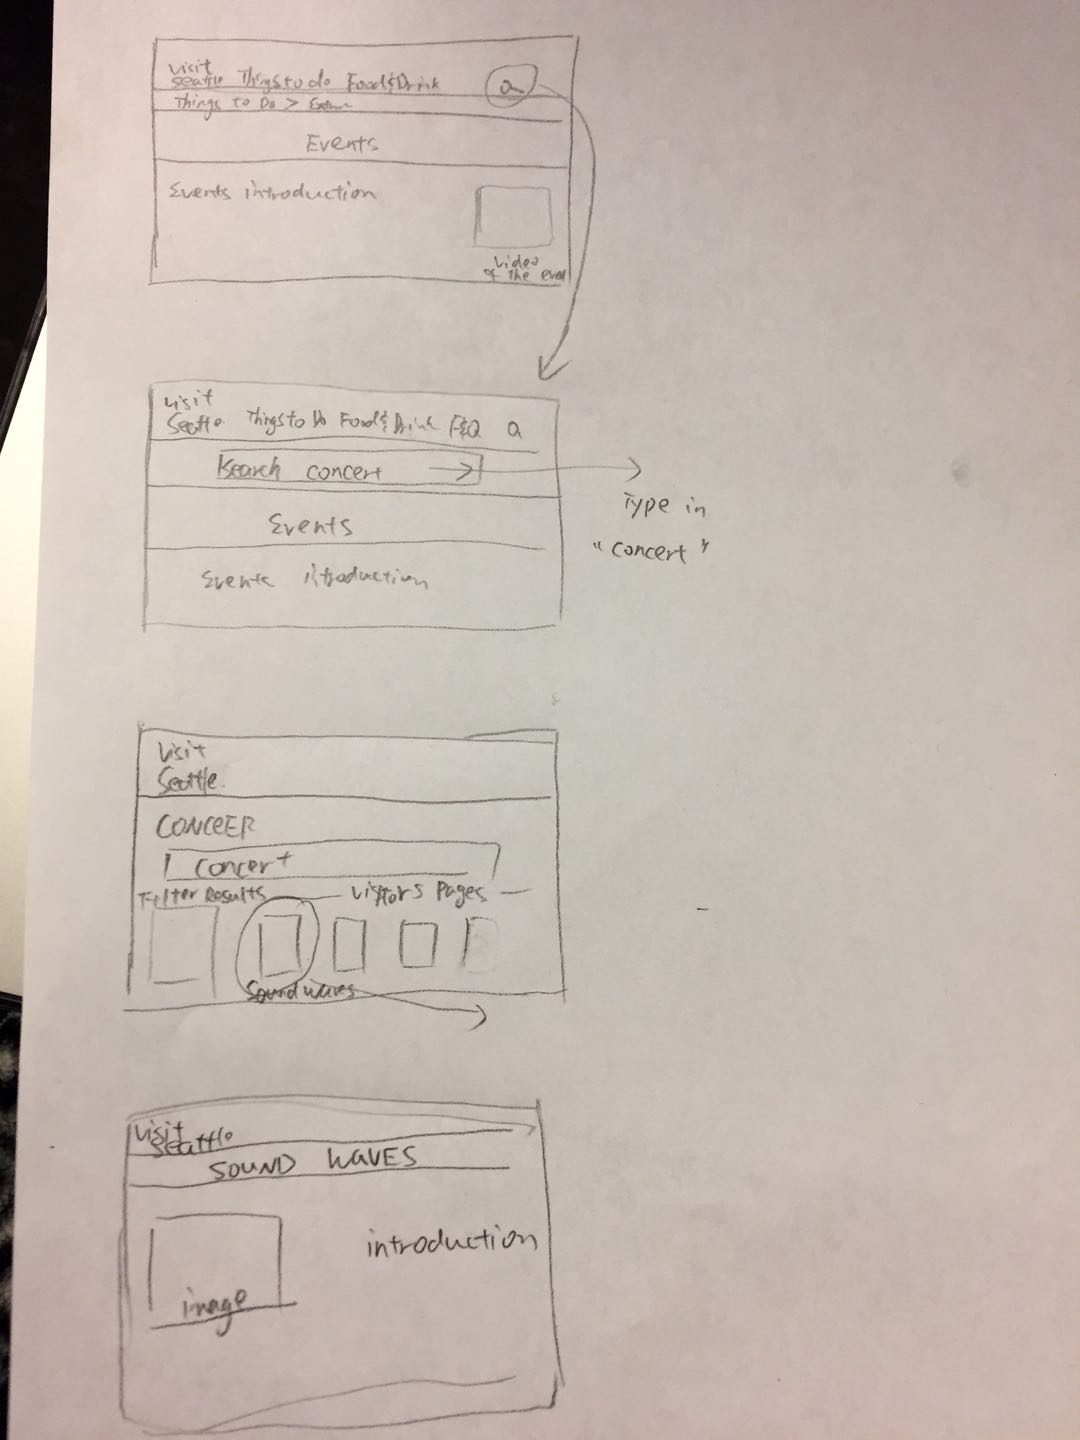 visit
seattle Things to do Food & Drink
Things to Do >
Events
Events introduction
Video
of the even
visit
Seattle Things to Do Food & Drink F&Q
Search concert
Type in
"concert"
Events
Events introduction
Visit
Seattle
CONCEER
concert
Filter Results
Visitors Pages
Sound waves
Visit
Seattle
SOUND WAVES
introduction
image